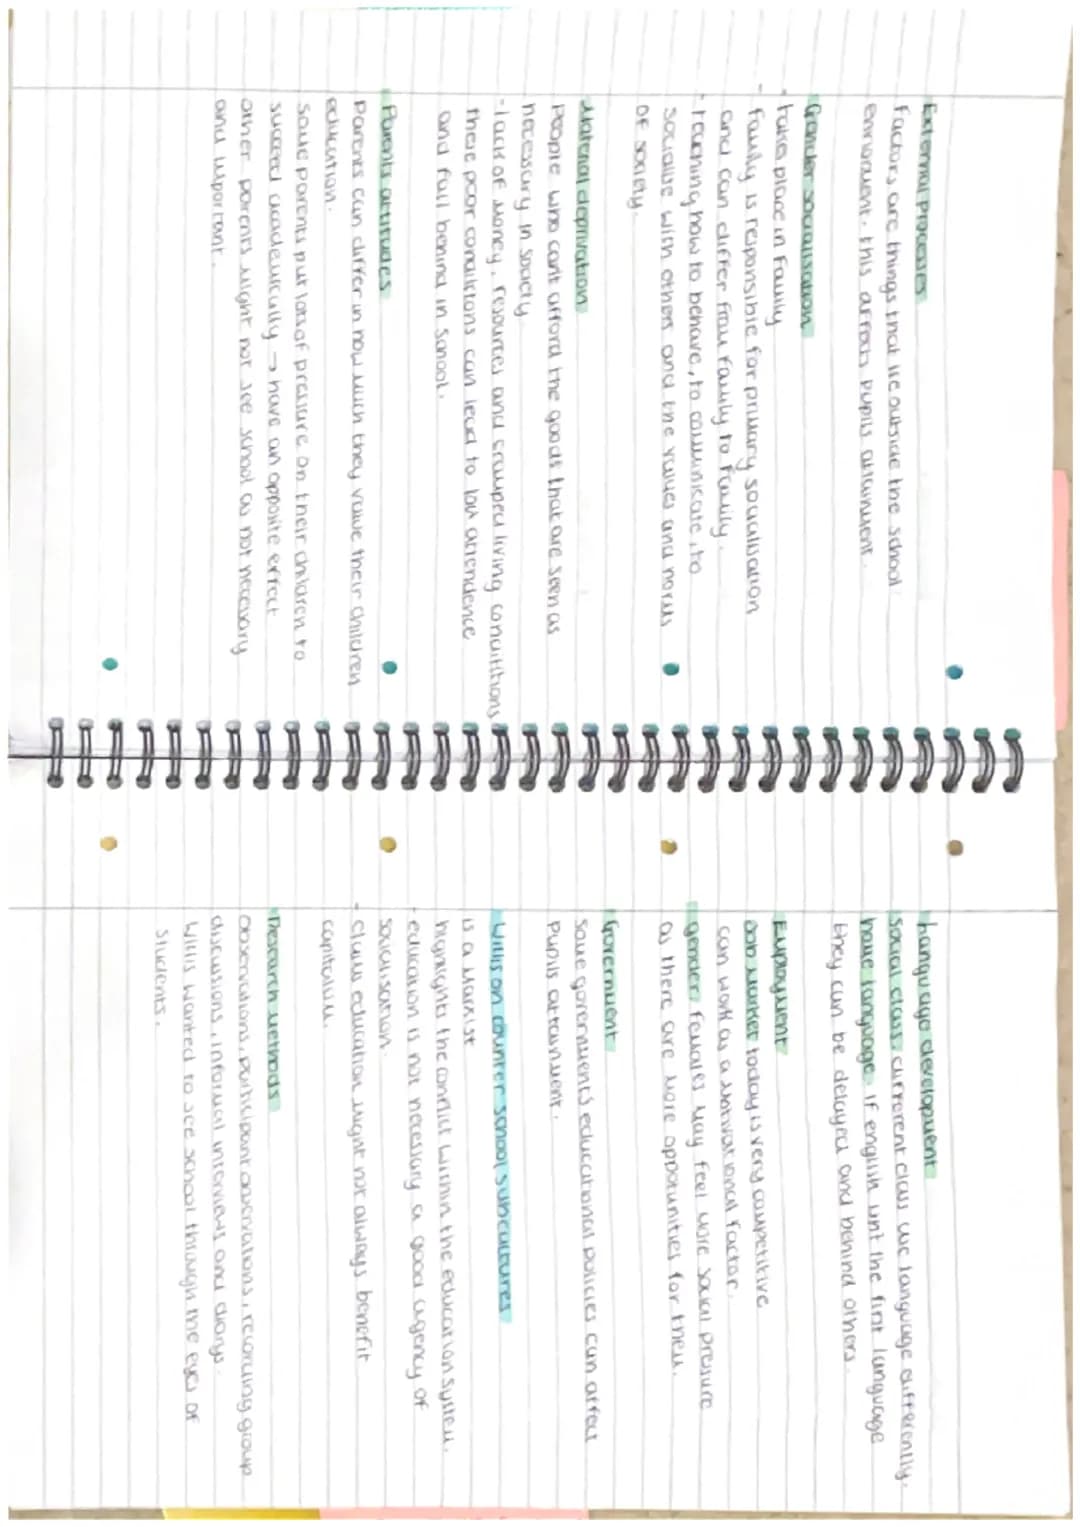 External Processes
factors are things that lie outside the school
enviroment. this affects pupils attainment.
Gender socialisation
- takes place in Family
- family is responsible for primary socialisation
and can differ from family to family.
- teaching how to behave, to communicate, to
socialise with others and the values and norms
of society.
Material deprivation
People who cant afford the goods that are seen as
necessary in society
- lack of money, resources and cramped living
these poor conditions can lead to low attendence
and fall behind in school.
Parents attitudes
Parents can differ in how much they value their children
education.
Some parents put lots of pressure on their children to
succeed academically → have an opposite effect
other parents might not see school as not necessary
and important.
Language development
Social class: different class use language differently.
home language: if english isnt the first language
they can be delayed and behind others.
Employment
Job Market today is very competitive
can work as a motivational factor.
gender: females may feel more social pressure
as there are more opportunities for them.
Government
Some goverment's educational policies can affect
Pupils attainment.
Willis on counter school subcultures
is a Marxist
highlights the conflict within the education system.
- education is not necessary a good agency of
socialisation.
- claims education might not always benefit
capitalism.
Research methods
observations, participant observations, recording group
discussions, informal interviews and diarys
Willis wanted to see school through the eyes of
students.